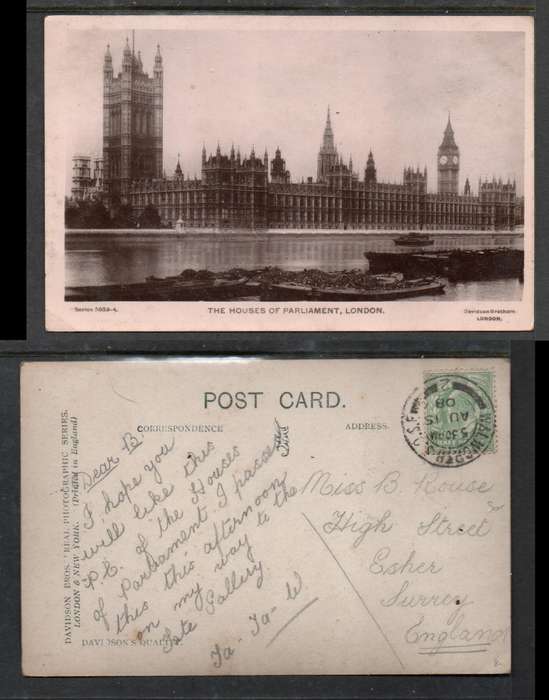 Series 5059-4.
THE HOUSES OF PARLIAMENT, LONDON.
Davidson Brothers
LONDON.
POST CARD.
CORRESPONDENCE
ADDRESS.
DAVIDSON BROS.' REAL PHOTOGRAPHIC SERIES.
LONDON & NEW YORK. (Printed in England)
DAVIDSON'S QUALITY.
5.30 PM
AU 15
08
Dear B.
I hope you
will like this
P.C. of the Houses
of Parliament I passed
this this afternoon
on my way to the
Tate Gallery.
Ta-Ta- W
Miss B. Rouse
High Street
Esher
Surrey
England